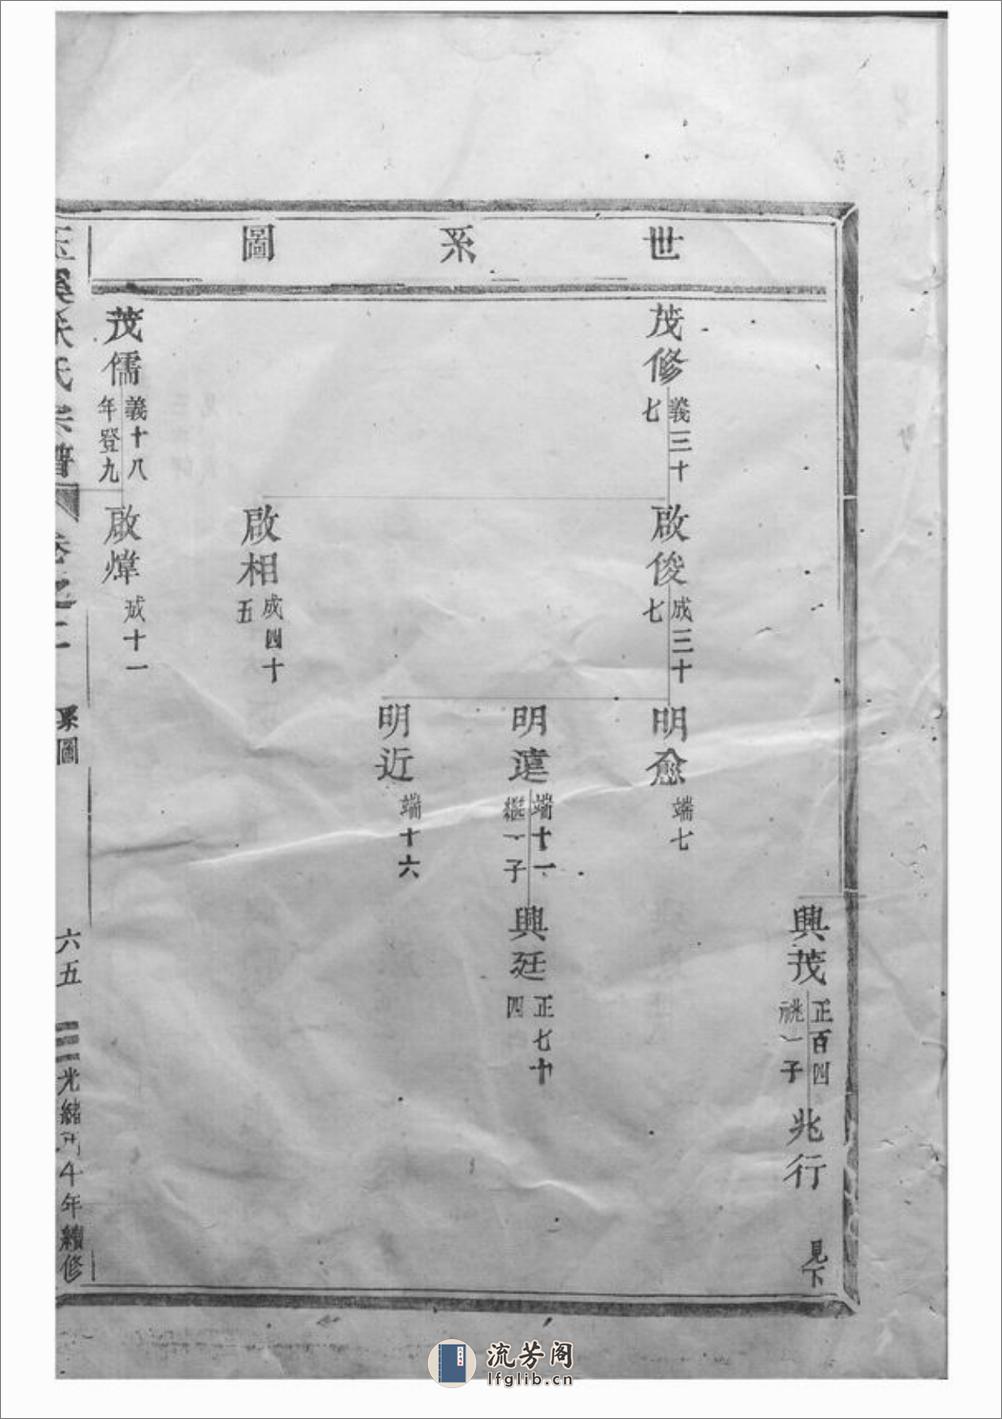 世系圖
興茂 正百四 祧一子
兆行 見下
茂修 義三十七
啟俊 成三十七
明愈 端七
明遠 端十一 繼一子
興廷 正七十四
明近 端十六
啟相 成四十五
茂儒 義十八 年登九
啟煒 成十一
玉溪 氏宗譜 卷之二 系圖 六五 光緒 年續修
流芳阁
lfglib.cn